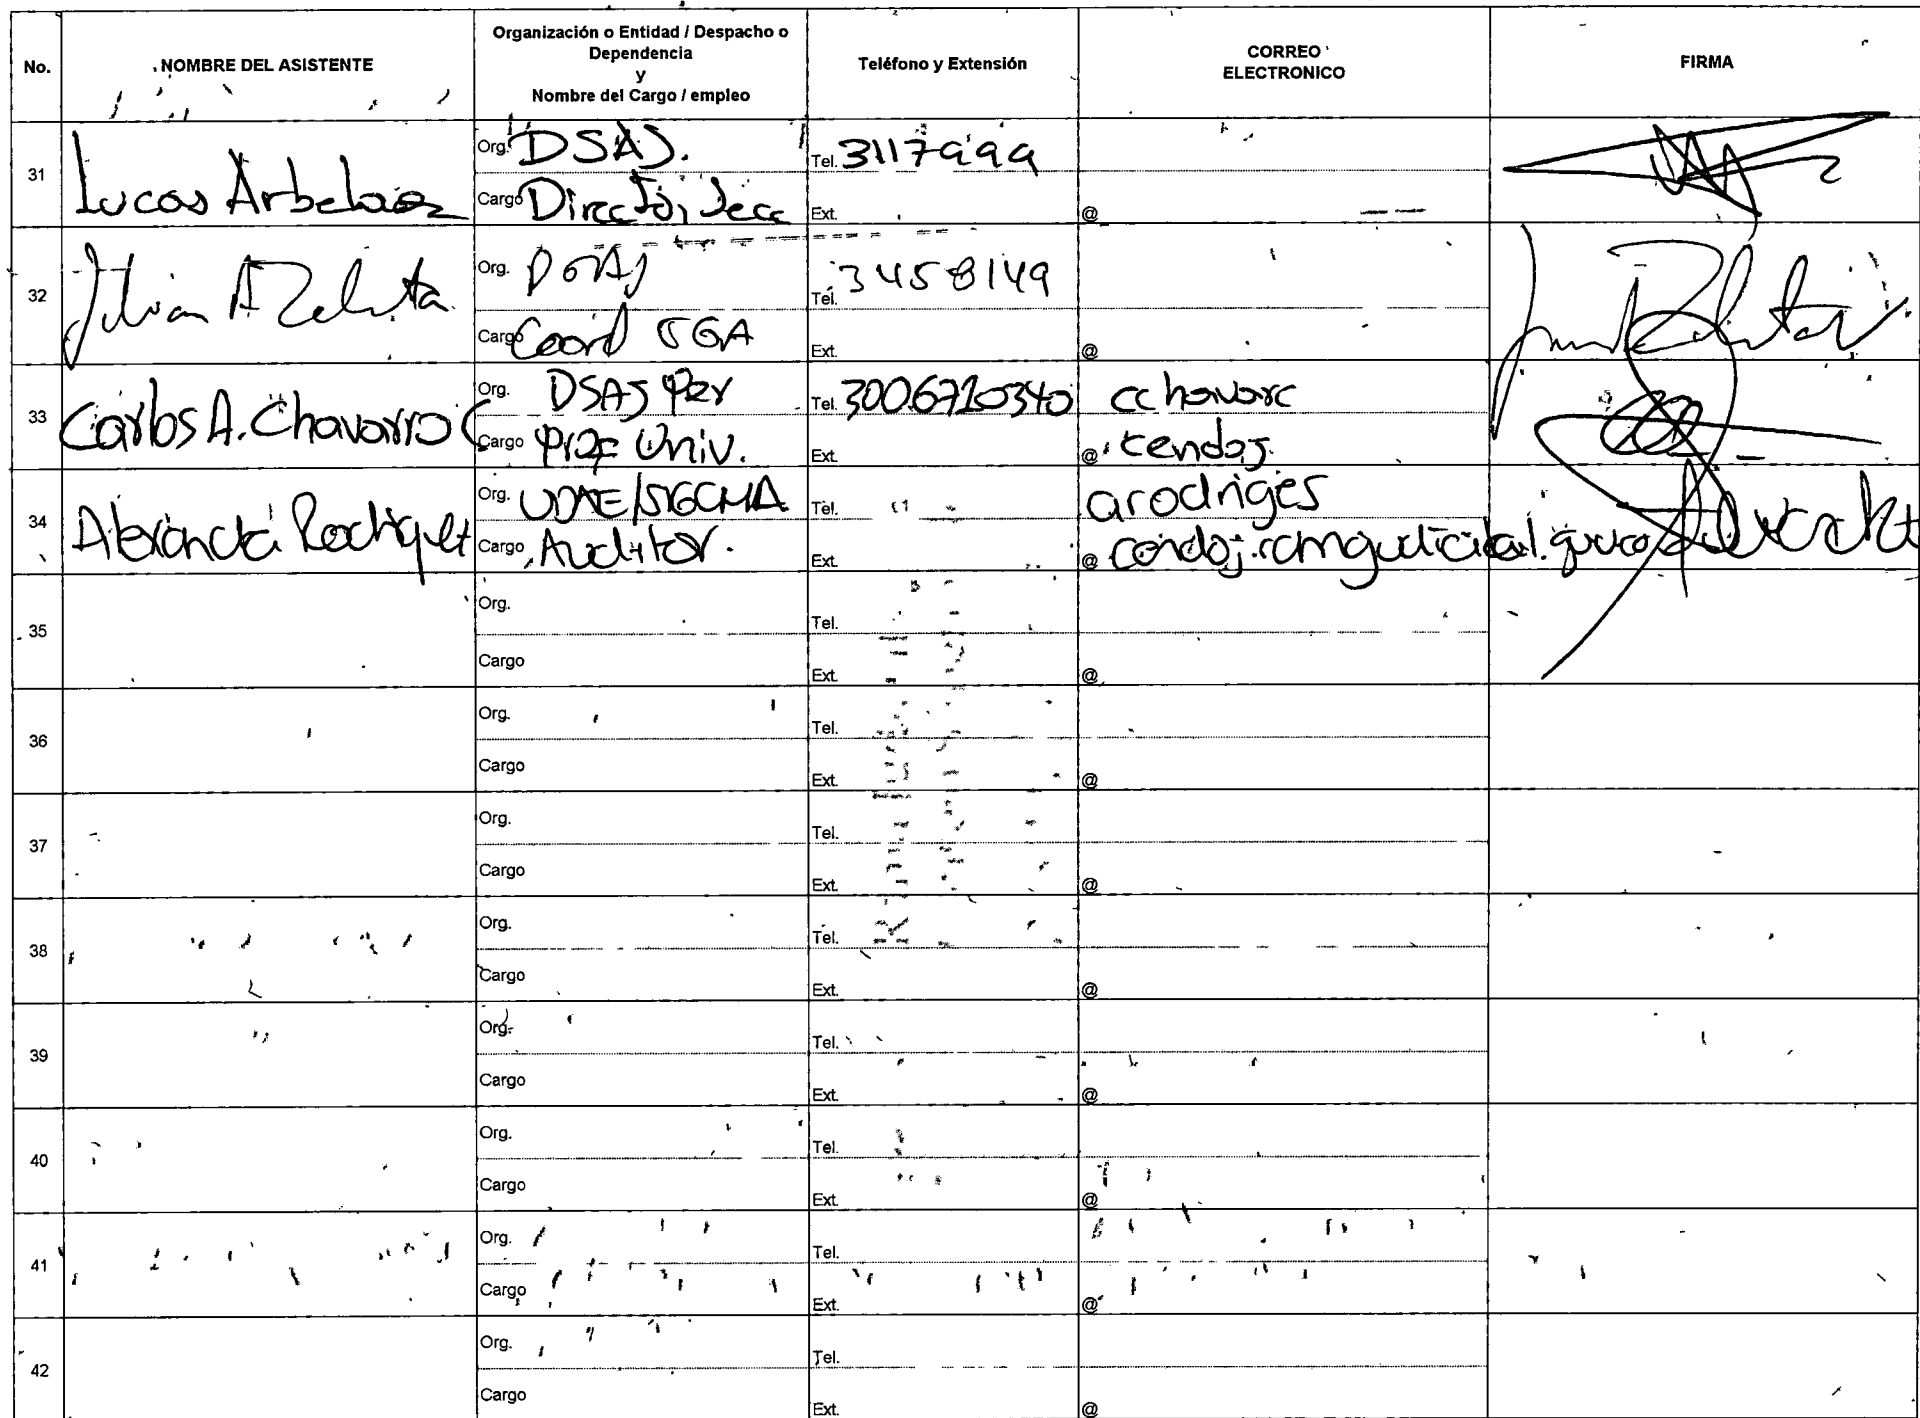 No.
NOMBRE DEL ASISTENTE
Organización o Entidad / Despacho o
Dependencia
y
Nombre del Cargo / empleo
Teléfono y Extensión
CORREO
ELECTRONICO
FIRMA
31
Lucas Arbelaez
Org. DSAJ.
Cargo Director Secc
Tel. 3117999
Ext.
@
32
Julian A
Org.
Cargo Coord SGA
Tel. 3458149
Ext.
@
33
Carlos A. Chavarro C
Org. DSAJ Per
Cargo Prof Univ.
Tel. 3006710340
Ext.
cchavarc
@ cendoj.
34
Alexandra Rodriguez
Org. UDAE/SIGCMA
Cargo Auditor.
Tel.
Ext.
arodriges
@
35
Org.
Cargo
Tel.
Ext.
@
36
Org.
Cargo
Tel.
Ext.
@
37
Org.
Cargo
Tel.
Ext.
@
38
Org.
Cargo
Tel.
Ext.
@
39
Org.
Cargo
Tel.
Ext.
@
40
Org.
Cargo
Tel.
Ext.
@
41
Org.
Cargo
Tel.
Ext.
@
42
Org.
Cargo
Tel.
Ext.
@